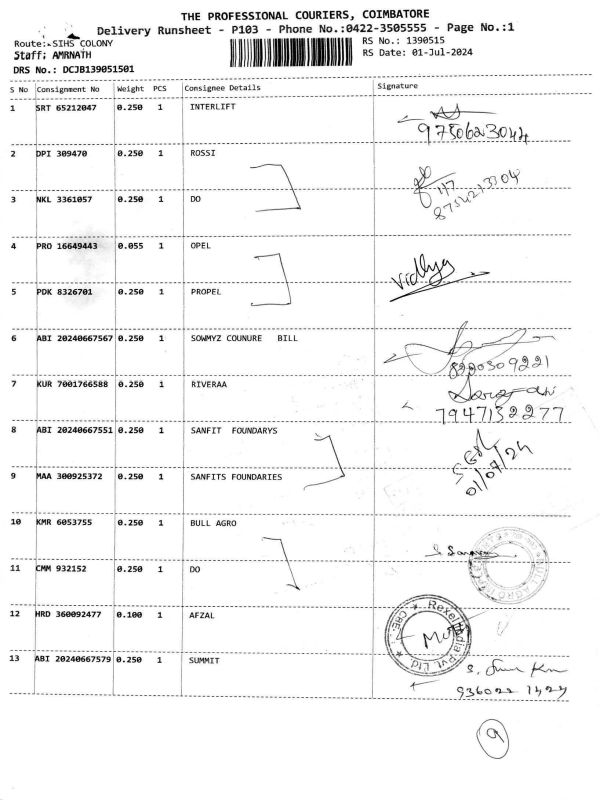 THE PROFESSIONAL COURIERS, COIMBATORE
Delivery Runsheet - P103 - Phone No.:0422-3505555 - Page No.:1
Route: SIHS COLONY
RS No.: 1390515
Staff: AMRNATH
RS Date: 01-Jul-2024
DRS No.: DCJB139051501
S No Consignment No Weight PCS Consignee Details Signature
1 SRT 65212047 0.250 1 INTERLIFT
9750623044
2 DPI 309470 0.250 1 ROSSI
3 NKL 3361057 0.250 1 DO
8754213304
4 PRO 16649443 0.055 1 OPEL
Vidhya
5 PDK 8326701 0.250 1 PROPEL
6 ABI 20240667567 0.250 1 SOWMYZ COUNURE BILL
8220309221
7 KUR 7001766588 0.250 1 RIVERAA
7947132277
8 ABI 20240667551 0.250 1 SANFIT FOUNDARYS
9 MAA 300925372 0.250 1 SANFITS FOUNDARIES
01/07/24
10 KMR 6053755 0.250 1 BULL AGRO
11 CMM 932152 0.250 1 DO
12 HRD 360092477 0.100 1 AFZAL
Rexel Media Pvt. Ltd. * CBE. *
13 ABI 20240667579 0.250 1 SUMMIT
936022 1424
9